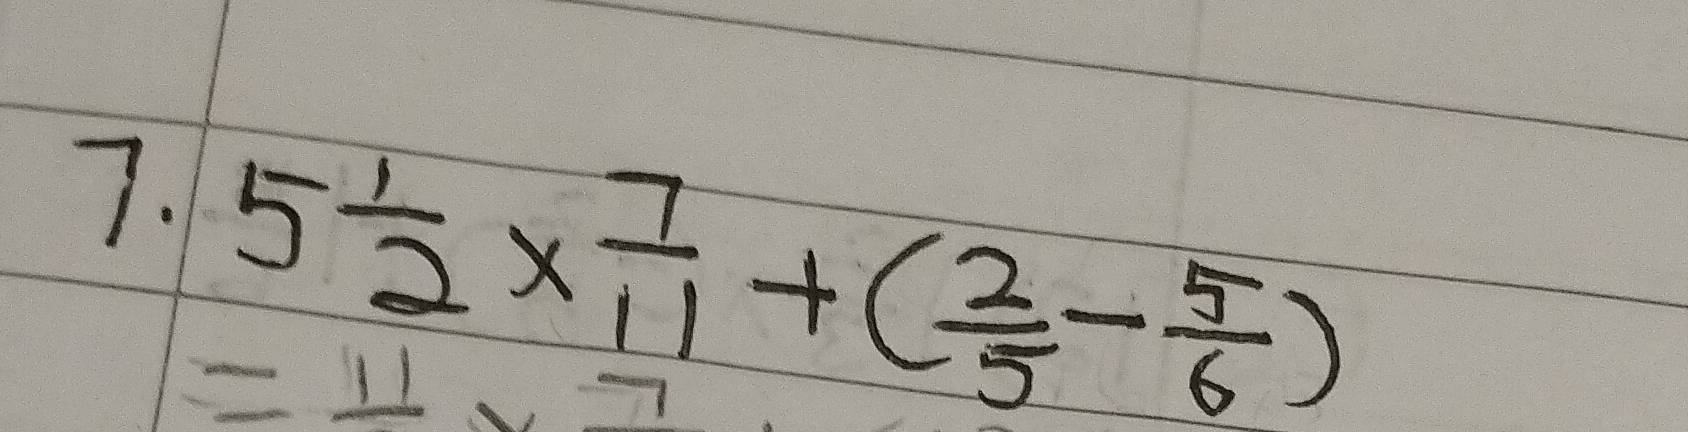 7. 5 1/2 × 7/11 + (2/5 - 5/6)
= 11 × 7